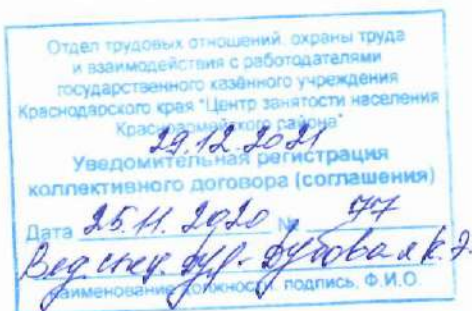 Отдел трудовых отношений, охраны труда
и взаимодействия с работодателями
государственного казённого учреждения
Краснодарского края "Центр занятости населения
Красноармейского района"
29.12.2021
Уведомительная регистрация
коллективного договора (соглашения)
Дата 25.11.2020 № 77
Вед. Дубовая К.Э.
наименование должности, подпись, Ф.И.О.